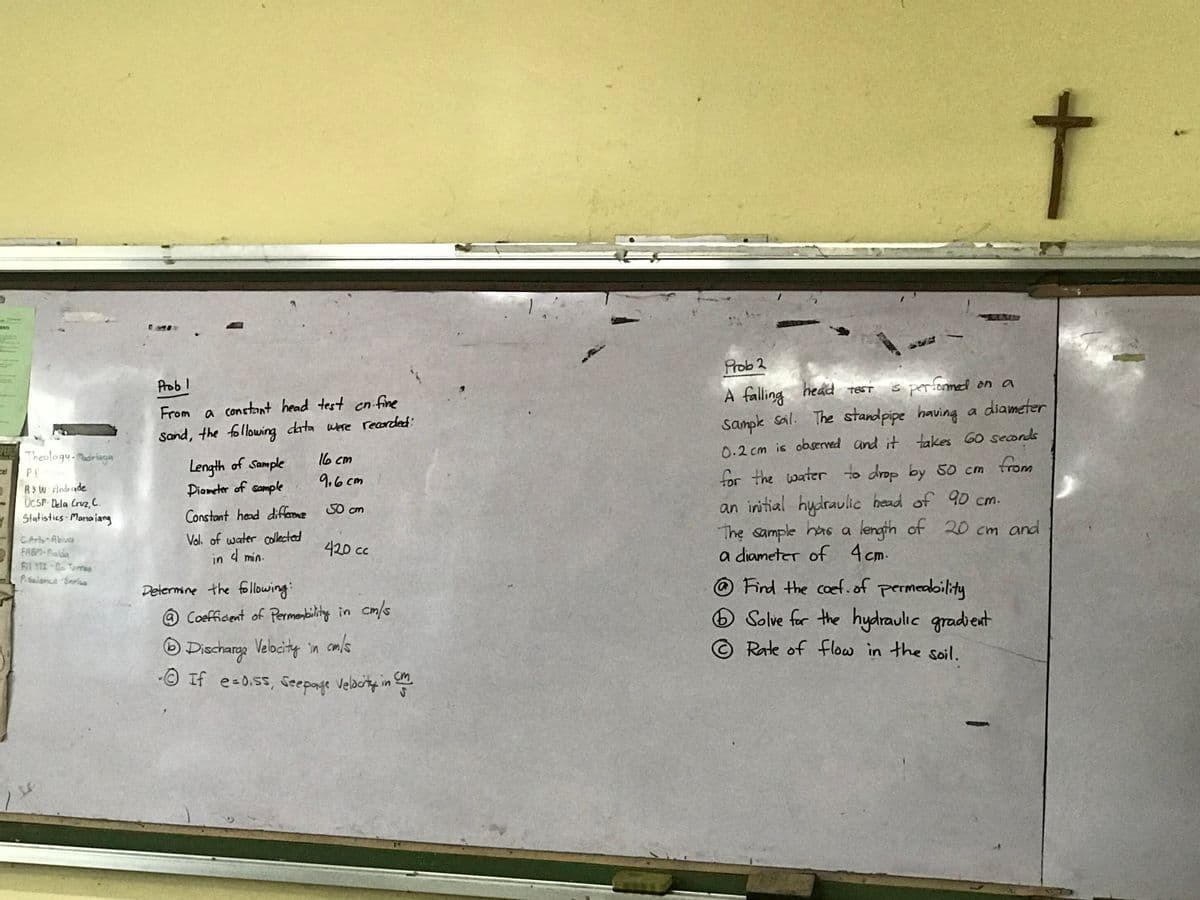 Theology - Madriaga
P.E
R & W Andrade
UCSP- Dela Cruz, C.
Statistics - Manalang
C.Arts- Abiva
FABM-
Prob 1
From a constant head test on fine
sand, the following data were recorded:
Length of Sample 16 cm
Diameter of sample 9.6 cm
Constant head difference 50 cm
Vol. of water collected
in 4 min. 420 cc
Determine the following:
(a) Coefficient of Permeability in cm/s
(b) Discharge Velocity in cm/s
(c) If e=0.55, Seepage Velocity in cm/s
Prob 2
A falling head TEST is performed on a
sample soil. The standpipe having a diameter
0.2 cm is observed and it takes 60 seconds
for the water to drop by 50 cm from
an initial hydraulic head of 90 cm.
The sample has a length of 20 cm and
a diameter of 4 cm.
(a) Find the coef. of permeability
(b) Solve for the hydraulic gradient
(c) Rate of flow in the soil.